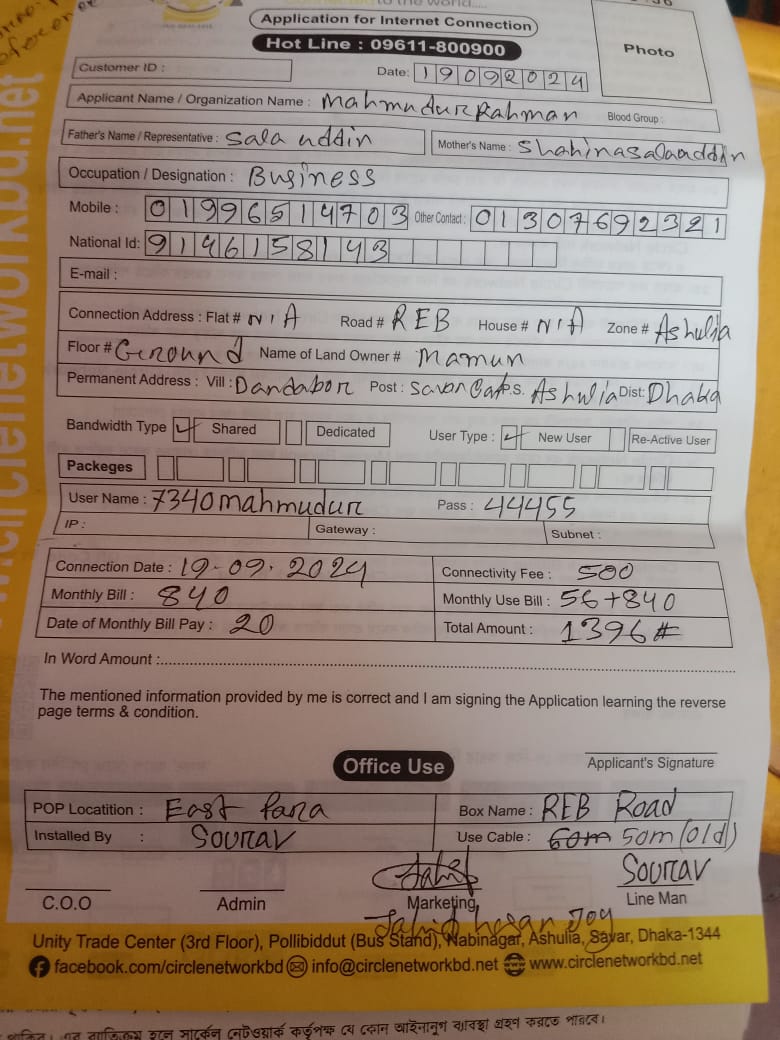 to the world.....
Application for Internet Connection
Hot Line : 09611-800900
Photo
Customer ID :
Date: 19092024
Applicant Name / Organization Name : Mahmudur Rahman Blood Group :
Father's Name / Representative : Sala uddin Mother's Name : Shahinasalauddin
Occupation / Designation : Business
Mobile : 01996514703 Other Contact : 01307692321
National Id: 9146158143
E-mail :
Connection Address : Flat # N/A Road # REB House # N/A Zone # Ashulia
Floor # Ground Name of Land Owner # Mamun
Permanent Address : Vill : Dandabor Post : Savar P.S. Ashulia Dist: Dhaka
Bandwidth Type ✓ Shared Dedicated User Type : ✓ New User Re-Active User
Packeges
User Name : 7340mahmudur Pass : 44455
IP : Gateway : Subnet :
Connection Date : 19-09-2024 Connectivity Fee : 500
Monthly Bill : 840 Monthly Use Bill : 56+840
Date of Monthly Bill Pay : 20 Total Amount : 1396#
In Word Amount :
The mentioned information provided by me is correct and I am signing the Application learning the reverse
page terms & condition.
Applicant's Signature
Office Use
POP Locatition : East Para Box Name : REB Road
Installed By : Sourav Use Cable : 60m 50m (old)
Sourav
C.O.O Admin Marketing Line Man
Jahid hasan Joy
Unity Trade Center (3rd Floor), Pollibiddut (Bus Stand), Nabinagar, Ashulia, Savar, Dhaka-1344
facebook.com/circlenetworkbd info@circlenetworkbd.net www.circlenetworkbd.net
www.circlenetworkbd.net
থাকিবে। এর ব্যতিক্রম হলে সার্কেল নেটওয়ার্ক কর্তৃপক্ষ যে কোন আইনানুগ ব্যবস্থা গ্রহণ করতে পারবে।